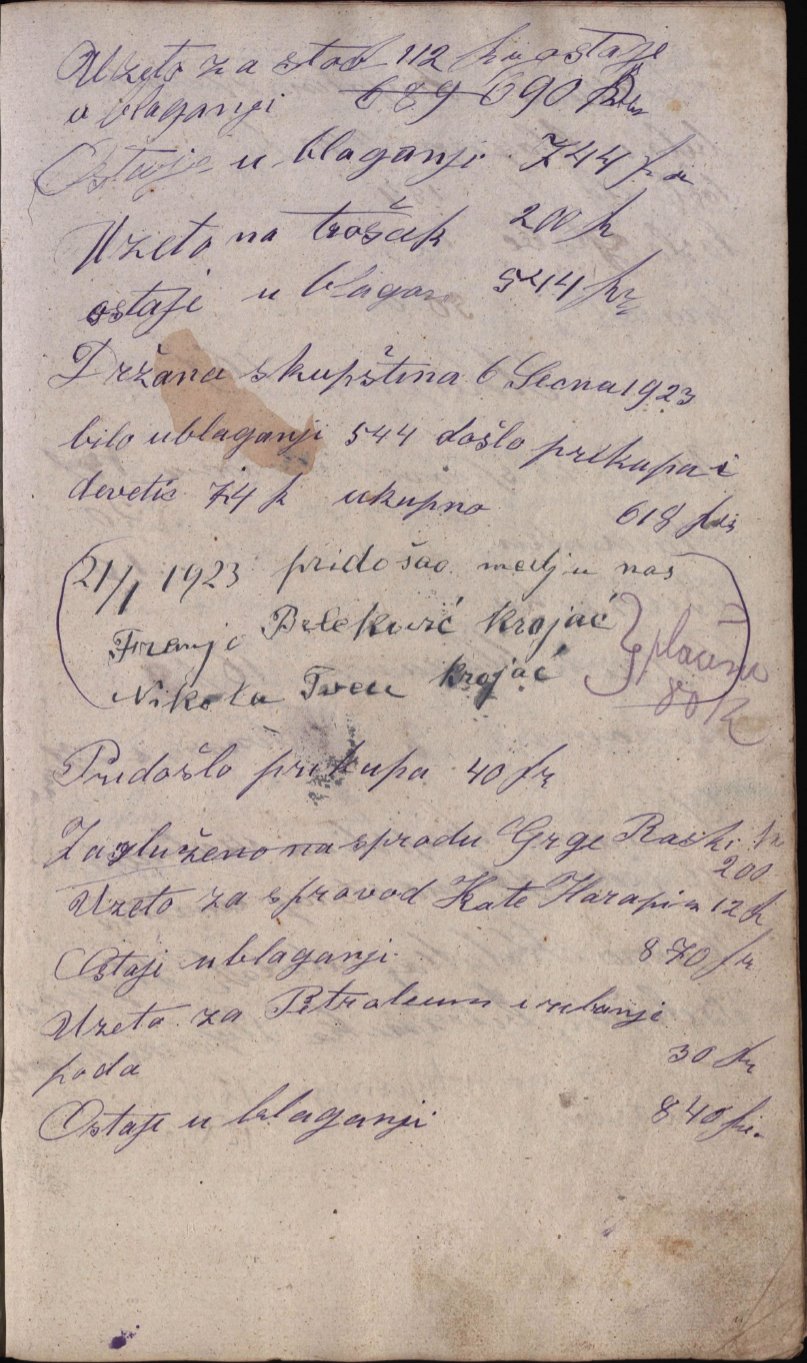 Uzeto za stol 112 kr ostaje
u blaganji 689 690 kr
Ostaje u blaganji 744 kr
Uzeto na trošak 200 k
ostaje u blagan 544 kr
Držana skupština 6 Secna 1923
bilo ublaganji 544 došlo prikupa i
devetić 74 k ukupno 618 kr
21/1 1923 pridošao medju nas
Franjo krojać
Nikola krojać
plaćeno
80 K
Pridošlo prikupa 40 kr
Zasluženo na sprodu Grge Raski kr
200
Uzeto za sprovod Kate Harapin 12 k
Ostaje ublaganji 870 kr
Uzeto za Petroleum i ribanje
poda 30 kr
Ostaje u blaganji 840 kr.